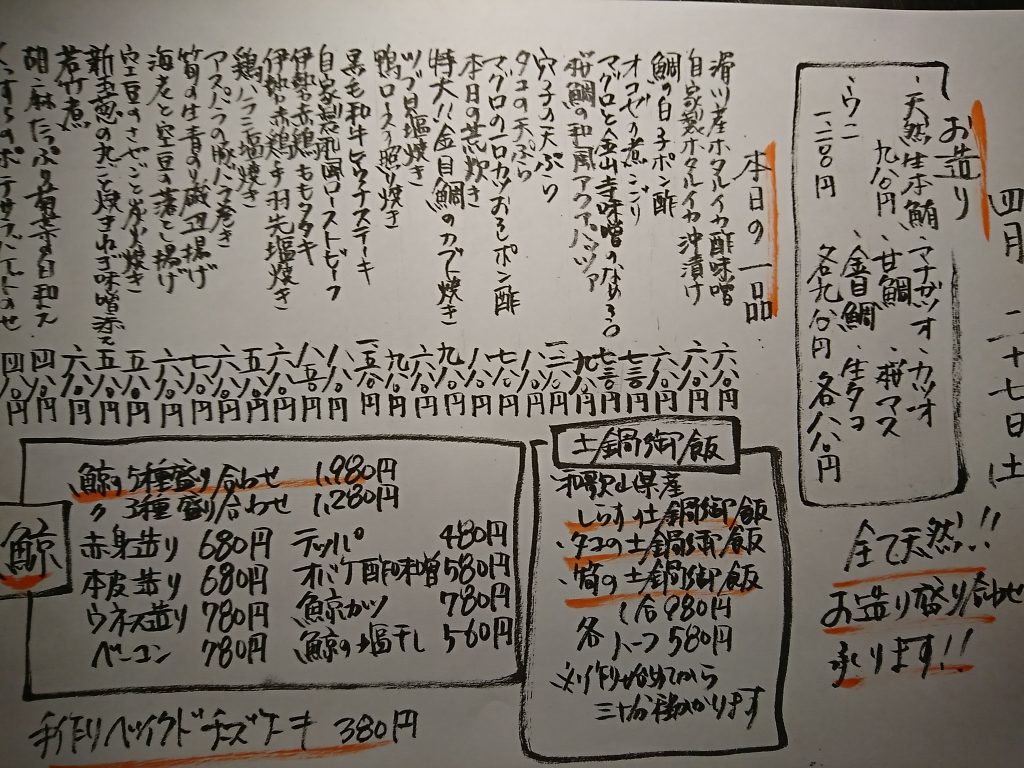 四月二十七日土
お造り
・天然生本鮪 九八〇円
・マナガツオ・カツオ
・甘鯛・桜マス
・金目鯛・生タコ
・ウニ 一二八〇円
各九八〇円
各八八〇円
全て天然!!
お造り盛り合わせ
承ります!!
本日の一品
滑川産ホタルイカ酢味噌 六八〇円
自家製ホタルイカ沖漬け 六八〇円
鯛の白子ポン酢 六八〇円
オコゼの煮こごり 七三〇円
マグロと金山寺味噌のなめろう 七三〇円
桜鯛の和風アクアパッツァ 九八〇円
穴子の天ぷら
タコの天ぷら 八八〇円
マグロの一口カツおろしポン酢 七八〇円
本日の煮炊き 八八〇円
特大!!金目鯛のカブト焼き 九八〇円
ツブ貝塩焼き 六八〇円
鴨ロース照り焼き 九八〇円
黒毛和牛ヒウチステーキ
自家製和風ローストビーフ
伊勢赤鶏ももタタキ
伊勢赤鶏手羽先塩焼き 六八〇円
鶏ハラミ塩焼き 五八〇円
アスパラの豚バラ巻き 六八〇円
筍の生青のり磯辺揚げ 七八〇円
海老と空豆の落とし揚げ 六八〇円
空豆のさやごと炭火焼き 五八〇円
新玉葱の丸ごと焼きねぎ味噌添え 五八〇円
若竹煮 六八〇円
胡麻たっぷり菊菜の白和え 四八〇円
くんすけのポテサラ 四八〇円
土鍋御飯
和歌山県産
しらすの土鍋御飯
・タコの土鍋御飯
・筍の土鍋御飯
各
1合980円
ハーフ580円
※作り始めてから
三十分程かかります
鯨
鯨の5種盛り合わせ 1,980円
〃 3種盛り合わせ 1,280円
赤身造り 680円
本皮造り 680円
ウネス造り 780円
ベーコン 780円
テッパ 480円
オバケ酢味噌 580円
鯨カツ 780円
鯨の塩干し 560円
手作りベイクドチーズケーキ 380円